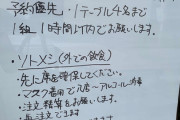 予約優先 1テーブル4名まで
1組 1時間以内でお願いします。
ソトノミ(外での飲食)
・先に席を確保してください。
・マスク着用で入店〜アルコール消毒
・注文 精算をお願いします。